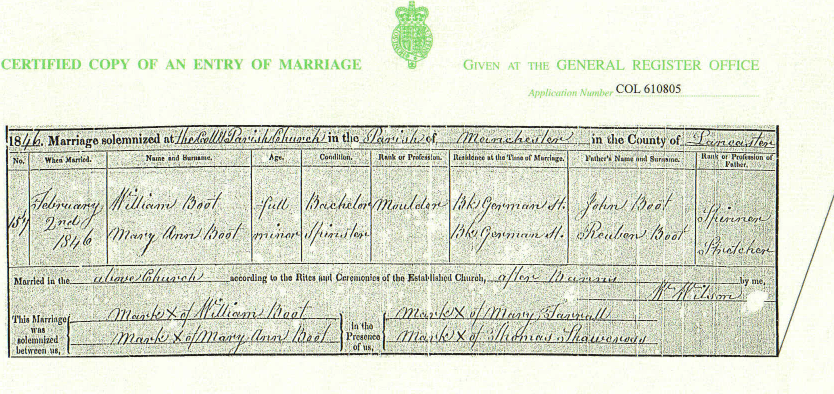 CERTIFIED COPY OF AN ENTRY OF MARRIAGE
GIVEN AT THE GENERAL REGISTER OFFICE
Application Number COL 610805
1846. Marriage solemnized at the Coll & Parish Church in the Parish of Manchester in the County of Lancaster
No. When Married. Name and Surname. Age. Condition. Rank or Profession. Residence at the Time of Marriage. Father's Name and Surname. Rank or Profession of Father.
157 February 2nd 1846
William Boot full Bachelor Moulder Bk German St. John Boot Spinner
Mary Ann Boot minor Spinster Bk German St. Reuben Boot Stretcher
Married in the above Church according to the Rites and Ceremonies of the Established Church, after Banns by me,
Wm Wilson
This Marriage was solemnized between us,
Mark X of William Boot
Mark X of Mary Ann Boot
In the Presence of us,
Mark X of Mary Farrall
Mark X of Thomas Shawcross